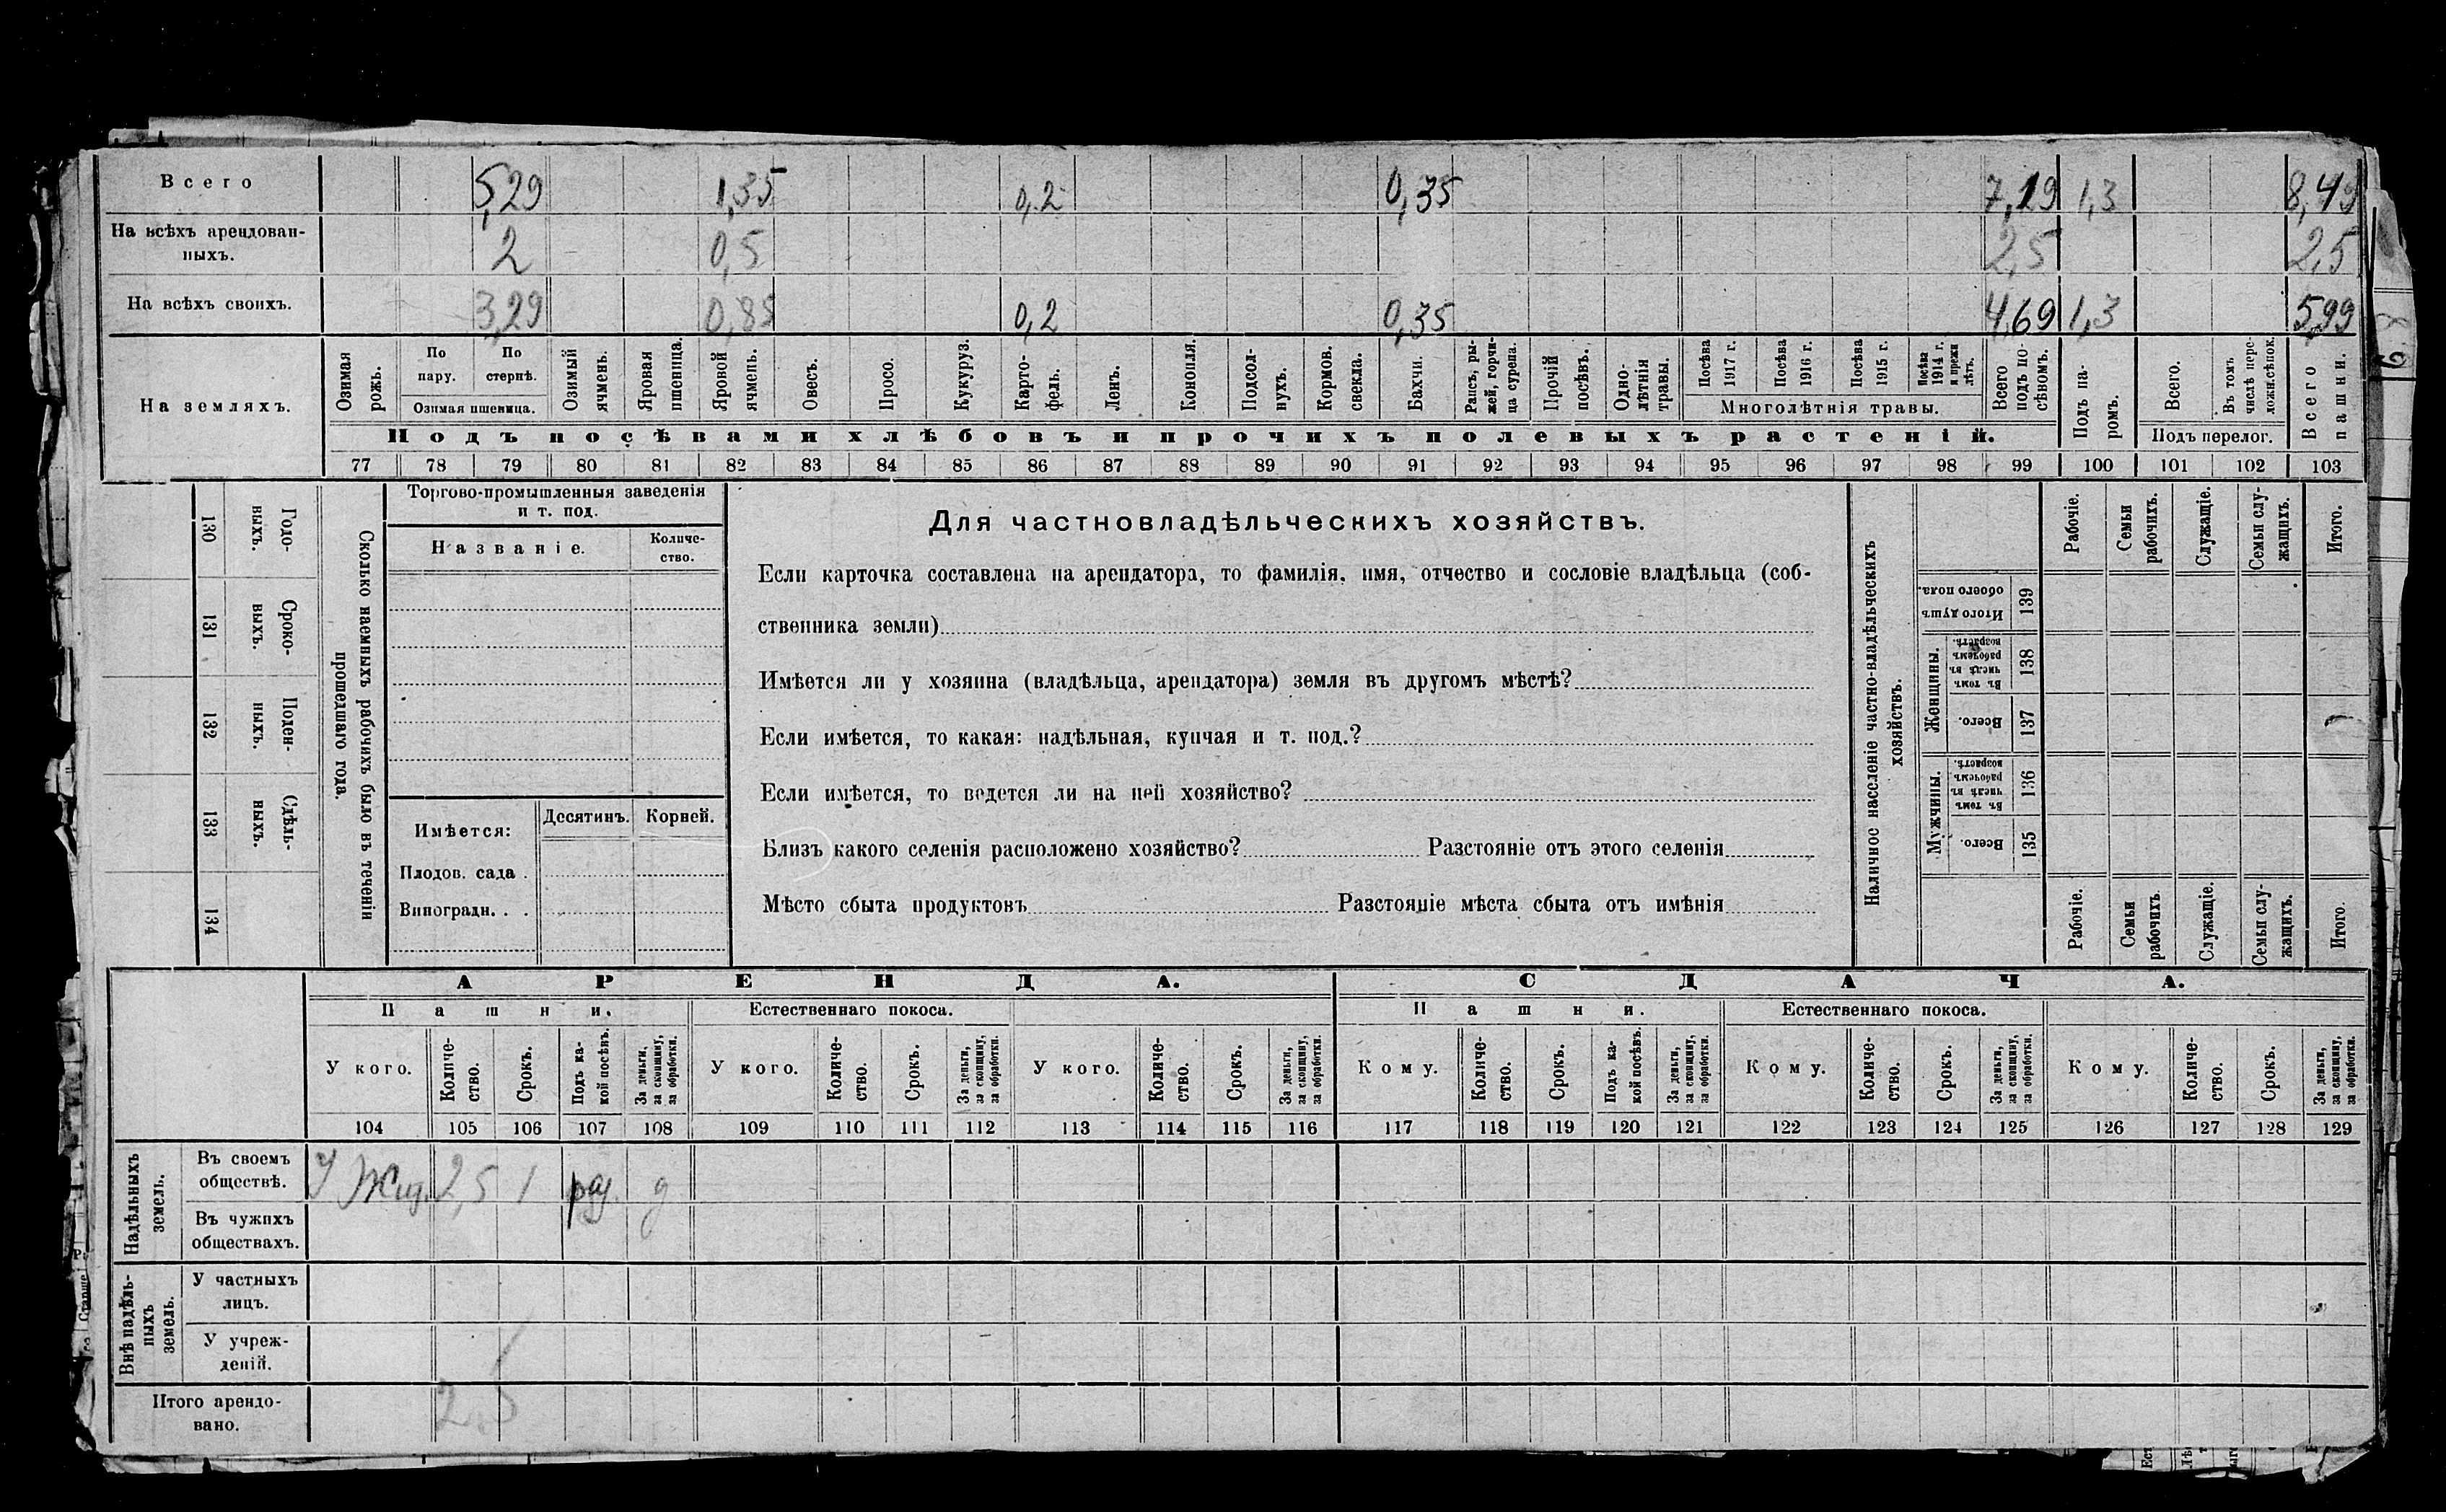 Всего 5,29 1,35 0,2 0,35 7,19 1,3 8,49
На всѣхъ арендован-
ныхъ. 2 0,5 2,5 2,5
На всѣхъ своихъ. 3,29 0,85 0,2 0,35 4,69 1,3 5,99
На земляхъ.
Озимая рожь.
По пару.
По стернѣ.
Озимая пшеница.
Озимый ячмень.
Яровая пшеница.
Яровой ячмень.
Овесъ.
Просо.
Кукуруз.
Карто-
фель.
Ленъ.
Конопля.
Подсол-
нухъ.
Кормов. свекла.
Бахчи.
Рапсъ, ры-
жей, горчи-
ца сурепа.
Прочій посѣвъ.
Одно-
лѣтнія травы.
Посѣва 1917 г.
Посѣва 1916 г.
Посѣва 1915 г.
Посѣва 1914 г. и прежн лѣтъ.
Многолѣтнія травы.
Всего подъ по-
сѣвомъ.
Подъ па-
ромъ.
Всего.
Въ томъ числѣ пере-
ложн.сѣнок.
Подъ перелог.
Всего пашни.
Подъ посѣвами хлѣбовъ и прочихъ полевыхъ растеній.
77 78 79 80 81 82 83 84 85 86 87 88 89 90 91 92 93 94 95 96 97 98 99 100 101 102 103
130 Годо-
выхъ.
131 Сроко-
выхъ.
132 Поден-
ныхъ.
133 Сдѣль-
ныхъ.
134
Сколько наемныхъ рабочихъ было въ теченіи
прошедшаго года.
Торгово-промышленныя заведенія
и т. под.
Названіе.
Количе-
ство.
Имѣется:
Десятинъ. Корней.
Плодов. сада .
Виноградн. . .
Для частновладѣльческихъ хозяйствъ.
Если карточка составлена на арендатора, то фамилія, имя, отчество и сословіе владѣльца (соб-
ственника земли)
Имѣется ли у хозяина (владѣльца, арендатора) земля въ другомъ мѣстѣ?
Если имѣется, то какая: надѣльная, купчая и т. под.?
Если имѣется, то ведется ли на ней хозяйство?
Близъ какого селенія расположено хозяйство? Разстояніе отъ этого селенія
Мѣсто сбыта продуктовъ Разстояніе мѣста сбыта отъ имѣнія
Наличное населеніе частно-владѣльческихъ
хозяйствъ.
Рабочіе.
Семьи рабочихъ.
Служащіе.
Семьи слу-
жащихъ.
Итого.
Итого душъ обоего пола. 139
Женщины.
Въ томъ числѣ въ рабочемъ возрастѣ. 138
Всего. 137
Мужчины.
Въ томъ числѣ въ рабочемъ возрастѣ. 136
Всего. 135
Рабочіе.
Семьи рабочихъ
Служащіе.
Семьи слу-
жащихъ.
Итого
АРЕНДА. СДАЧА.
Пашни. Естественнаго покоса. Пашни. Естественнаго покоса.
У кого.
Количе-
ство.
Срокъ.
Подъ ка-
кой посѣвъ.
За деньги, за скопщину, за обработки.
У кого.
Количе-
ство.
Срокъ.
За деньги, за скопщину, за обработки.
У кого.
Количе-
ство.
Срокъ.
За деньги, за скопщину, за обработки.
Кому.
Количе-
ство.
Срокъ.
Подъ ка-
кой посѣвъ.
За деньги, за скопщину, за обработки.
Кому.
Количе-
ство.
Срокъ.
За деньги, за скопщину, за обработки.
Кому.
Количе-
ство.
Срокъ.
За деньги, за скопщину, за обработки.
104 105 106 107 108 109 110 111 112 113 114 115 116 117 118 119 120 121 122 123 124 125 126 127 128 129
Надѣльныхъ
земель.
Въ своемъ
обществѣ. У 2,5 1 д
Въ чужихъ
обществахъ.
Внѣ надѣль-
ныхъ
земель.
У частныхъ
лицъ.
У учреж-
деній.
Итого арендо-
вано. 2,5